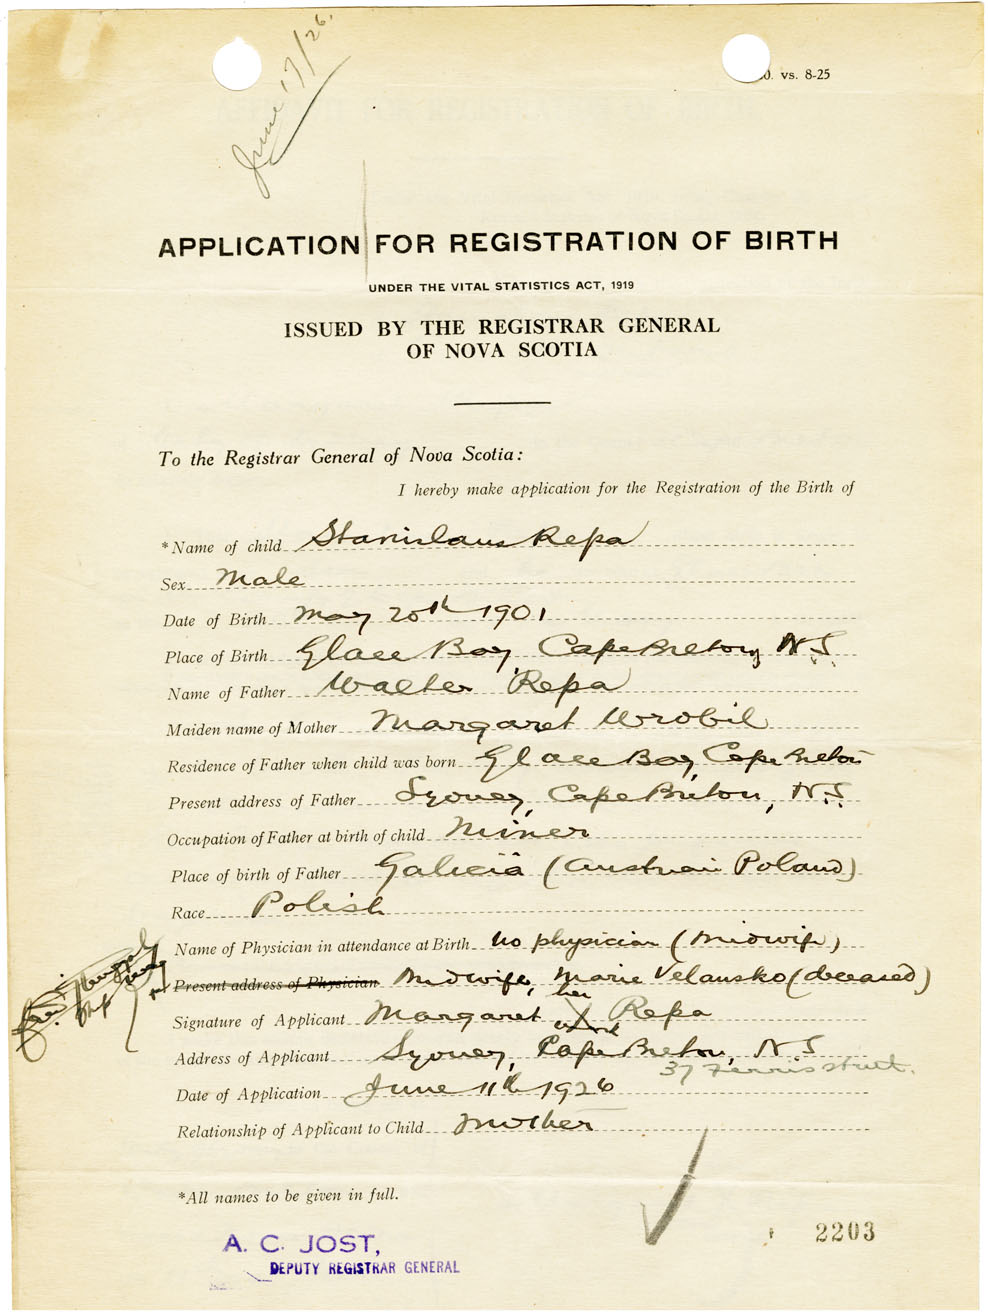 June 17/26.
vs. 8-25
APPLICATION FOR REGISTRATION OF BIRTH
UNDER THE VITAL STATISTICS ACT, 1919
ISSUED BY THE REGISTRAR GENERAL
OF NOVA SCOTIA
To the Registrar General of Nova Scotia:
I hereby make application for the Registration of the Birth of
*Name of child Stanislaus Repa
Sex Male
Date of Birth May 20th 1901
Place of Birth Glace Bay, Cape Breton, N.S.
Name of Father Walter Repa
Maiden name of Mother Margaret Wrobil
Residence of Father when child was born Glace Bay, Cape Breton
Present address of Father Sydney, Cape Breton, N.S.
Occupation of Father at birth of child Miner
Place of birth of Father Galicia (Austrian Poland)
Race Polish
Name of Physician in attendance at Birth No physician (Midwife)
Present address of Physician Midwife, Marie Velansko (deceased)
her
Signature of Applicant Margaret X Repa
mark
Address of Applicant Sydney, Cape Breton, N.S.
37 Ferris Street.
Date of Application June 11th 1926
Relationship of Applicant to Child Mother
*All names to be given in full.
A. C. JOST,
DEPUTY REGISTRAR GENERAL
2203